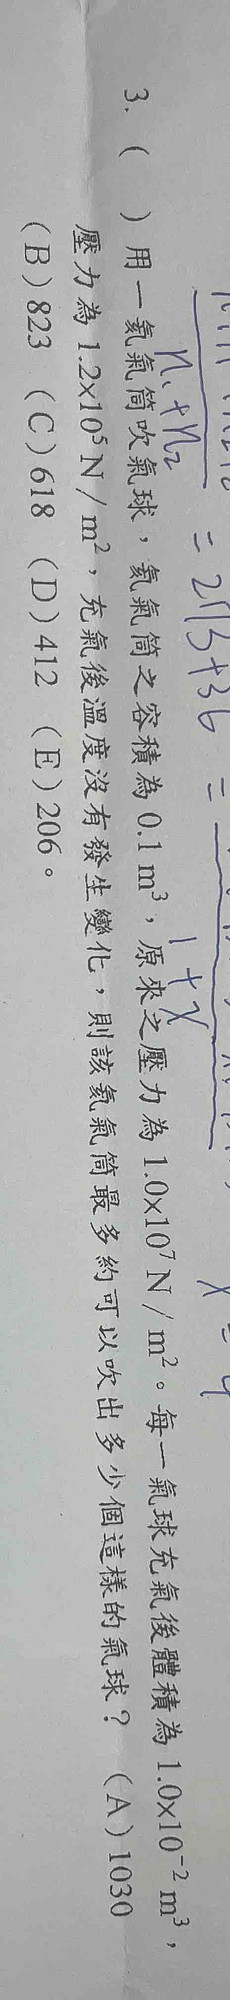 = 273+36 =
n₁+n₂
1+x
3. (　) 用一氦氣筒吹氣球，氦氣筒之容積為 0.1 m³，原來之壓力為 1.0×10⁷ N / m²。每一氣球充氣後體積為 1.0×10⁻² m³，
壓力為 1.2×10⁵ N / m²，充氣後溫度沒有發生變化，則該氦氣筒最多約可以吹出多少個這樣的氣球？ (A) 1030
(B) 823 (C) 618 (D) 412 (E) 206。